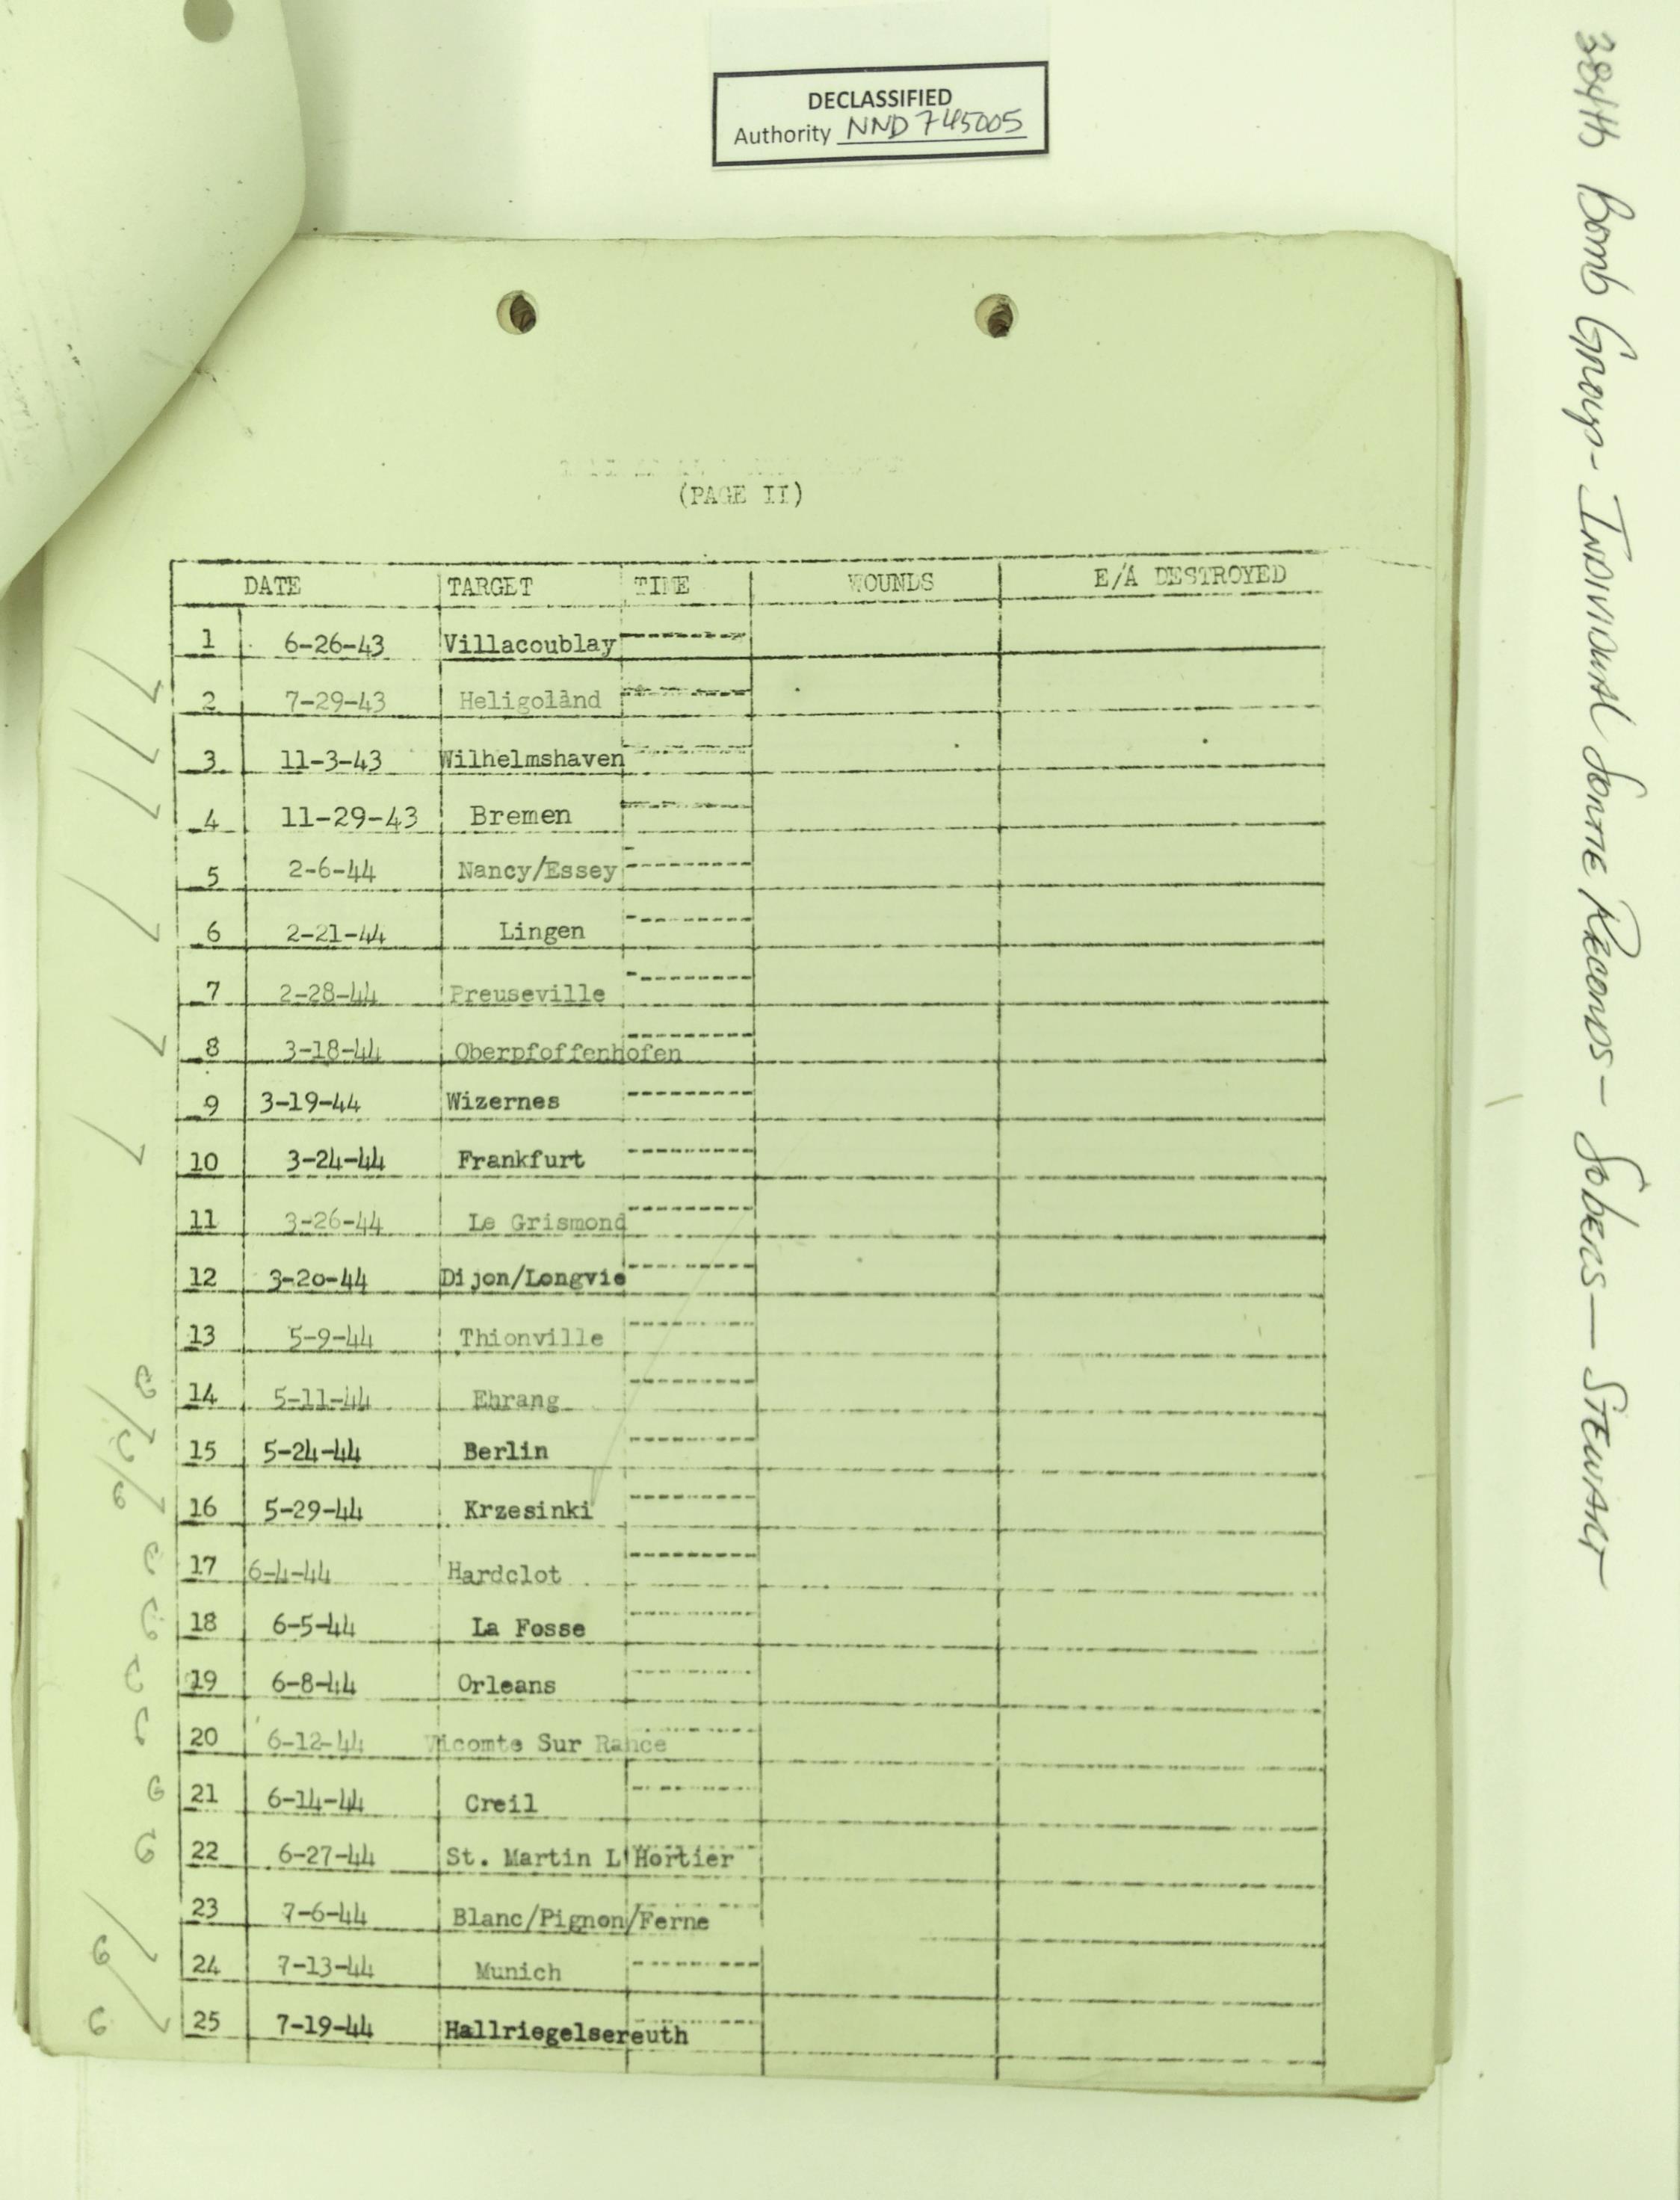 DECLASSIFIED
Authority NND 745005
384th Bomb Group - Individual Sortie Records - Sobers - Stewart
(PAGE II)
DATE TARGET TIME WOUNDS E/A DESTROYED
1 6-26-43 Villacoublay ---------
2 7-29-43 Heligoland ---------
3 11-3-43 Wilhelmshaven ---------
4 11-29-43 Bremen ---------
5 2-6-44 Nancy/Essey ---------
6 2-21-44 Lingen ---------
7 2-28-44 Preuseville ---------
8 3-18-44 Oberpfoffenhofen ---------
9 3-19-44 Wizernes ---------
10 3-24-44 Frankfurt ---------
11 3-26-44 Le Grismond ---------
12 3-20-44 Dijon/Longvie ---------
13 5-9-44 Thionville ---------
14 5-11-44 Ehrang ---------
15 5-24-44 Berlin ---------
16 5-29-44 Krzesinki ---------
17 6-4-44 Hardclot ---------
18 6-5-44 La Fosse ---------
19 6-8-44 Orleans ---------
20 6-12-44 Vicomte Sur Rance ---------
21 6-14-44 Creil ---------
22 6-27-44 St. Martin L'Hortier ---------
23 7-6-44 Blanc/Pignon/Ferne ---------
24 7-13-44 Munich ---------
25 7-19-44 Hallriegelsereuth ---------